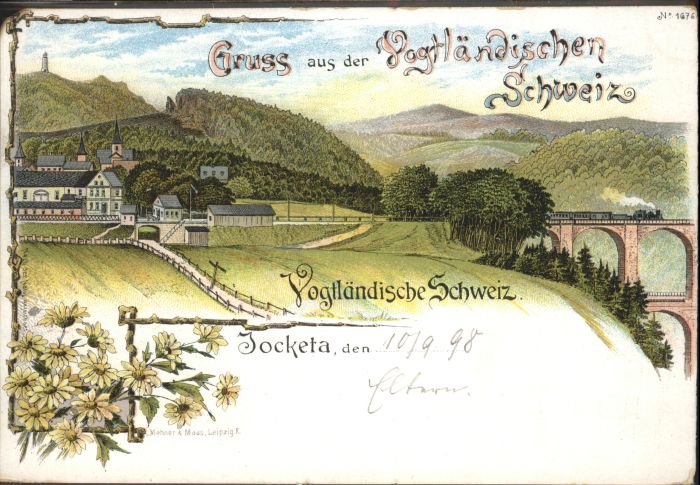 No. 1676
Gruss aus der Vogtländischen
Schweiz
Vogtländische Schweiz.
Jocketa, den 10/9 98
Eltern.
Mehner & Maas, Leipzig.R.